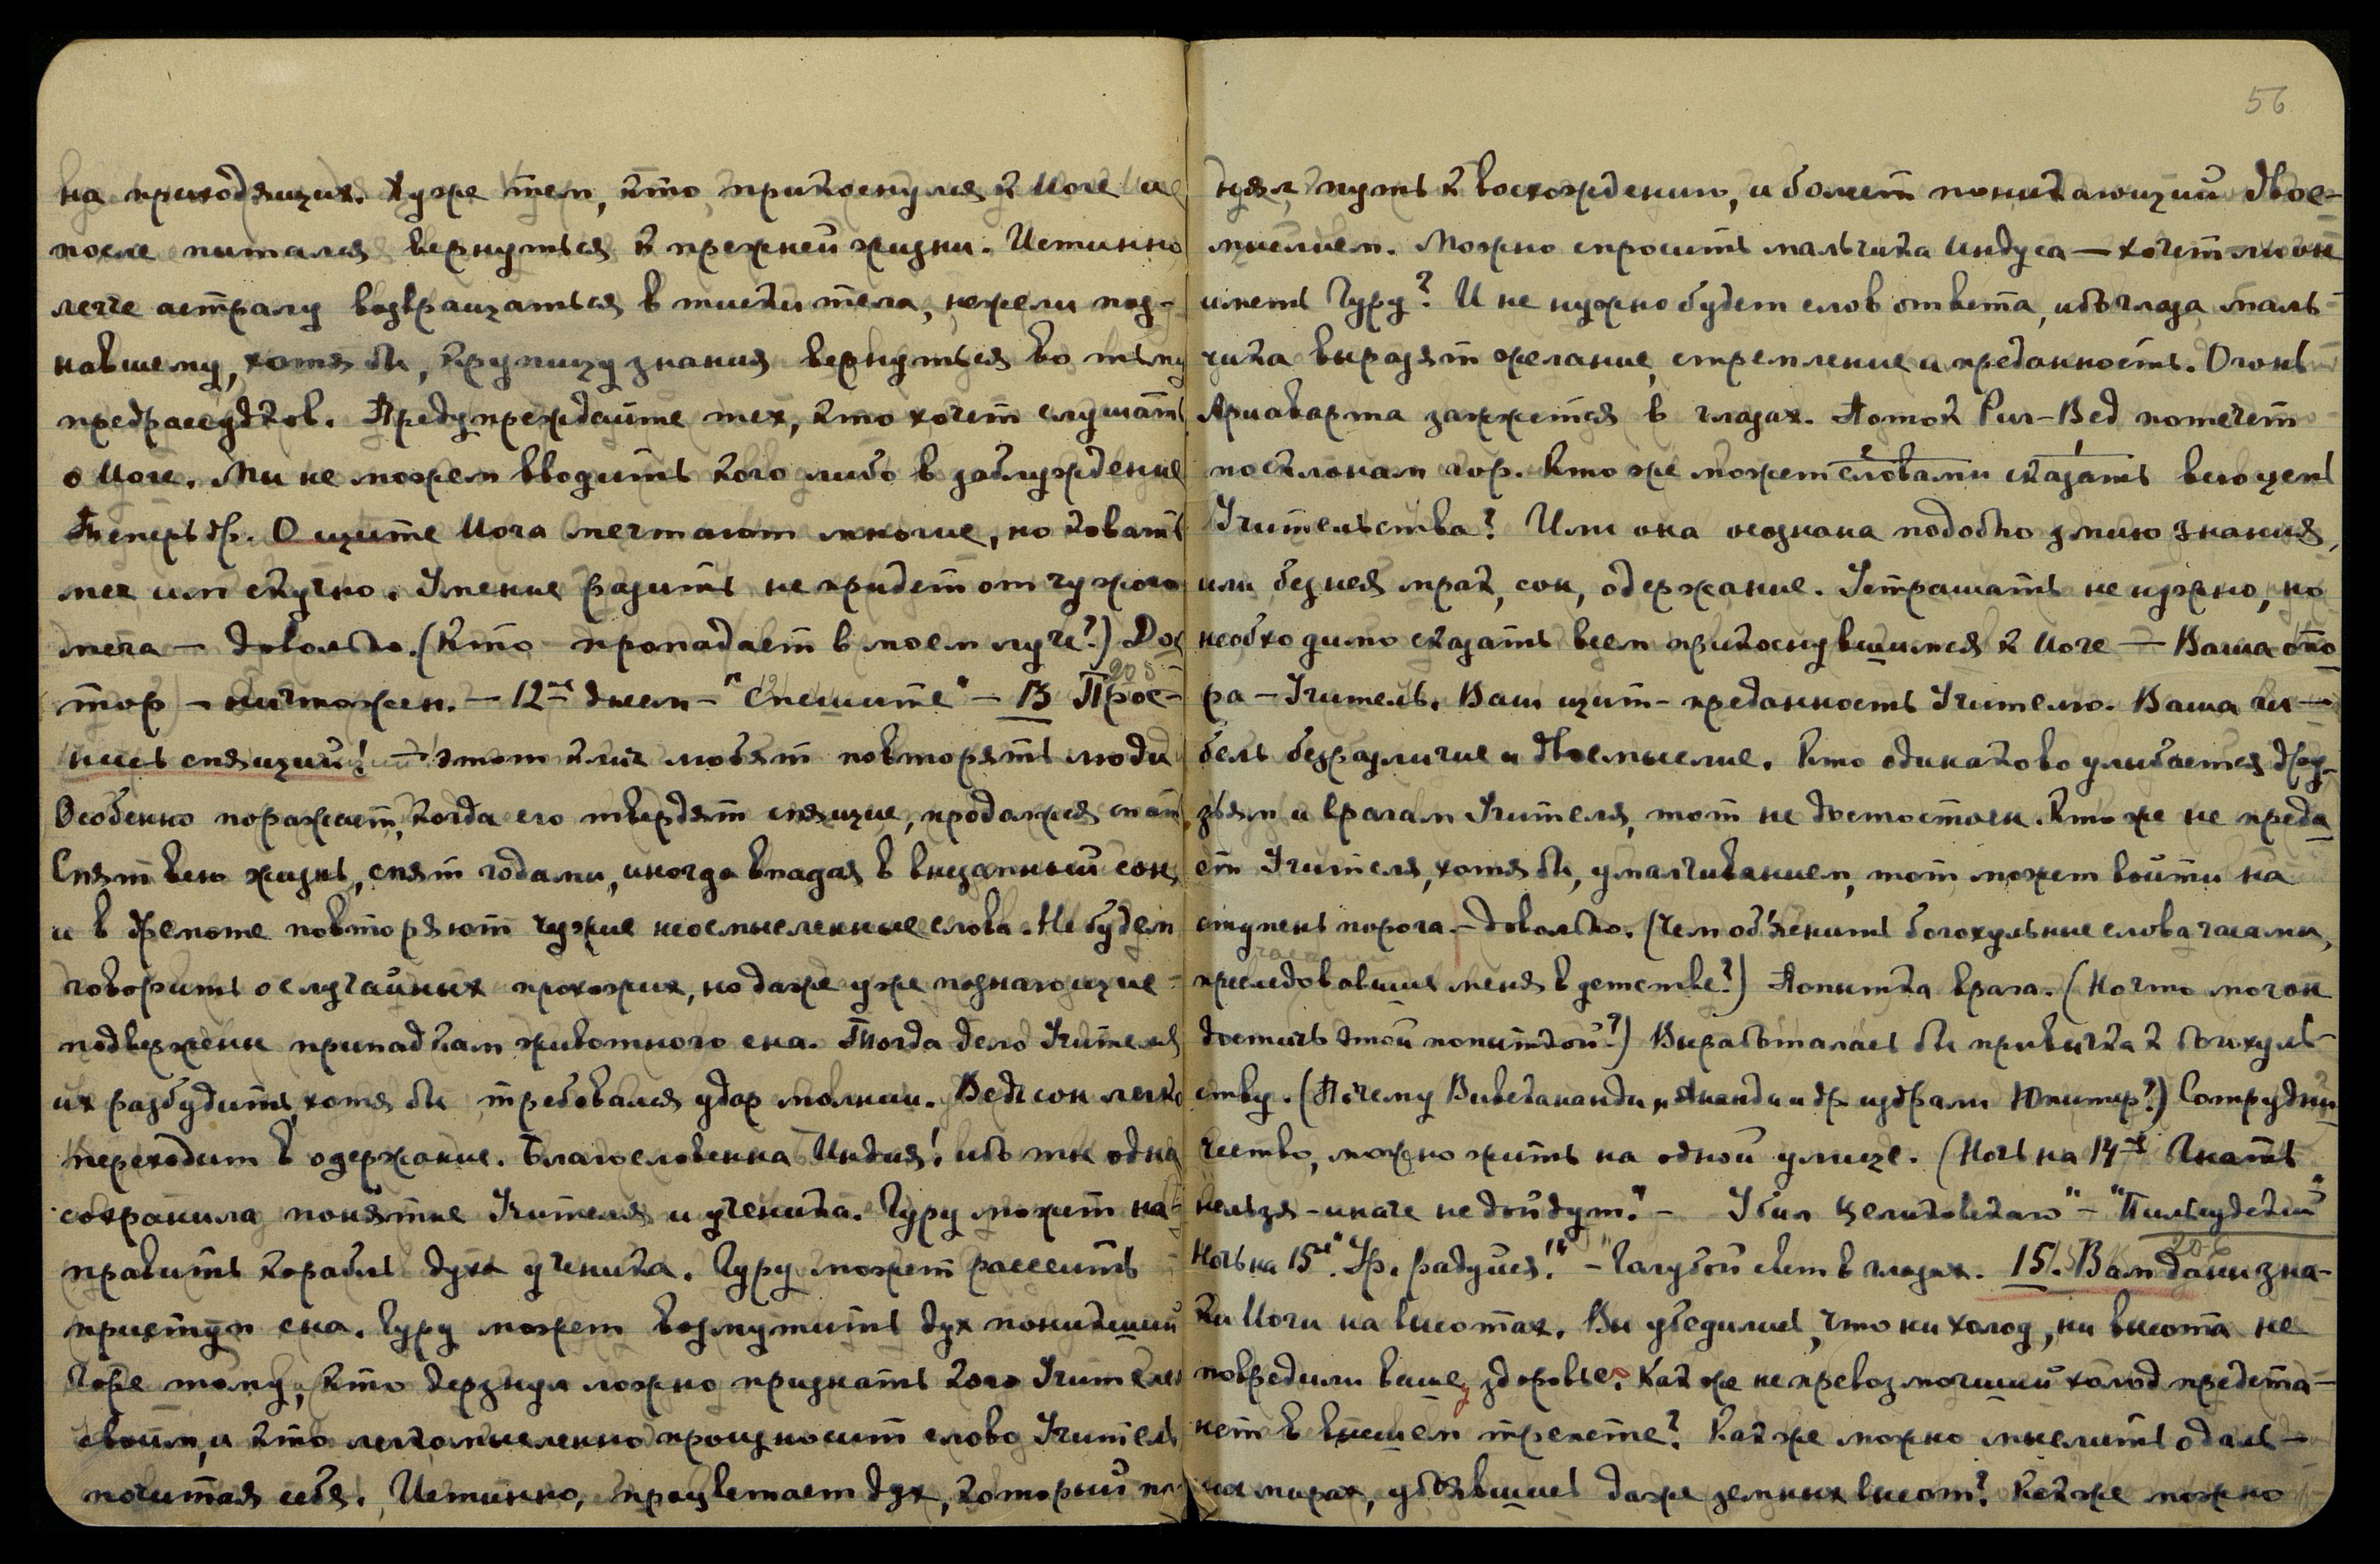 на приходящих. Хуже тем, кто, прикоснулся к Иоге и
после пытался вернуться к прежней жизни. Истинно,
легче астралу возвращаться в тиски тела, нежели поз-
навшему, хотя бы, крупицу знания вернуться во тьму
предрассудков. Предупреждайте тех, кто хочет слушать
о Иоге. Мы не можем вводить кого либо в заблуждение
Теперь др. О щите Иога мечтают многие, но ковать
меч им скучно. Умение разить не придет от чужого
меча — довольно. (Кто пропадает в моем луче?) Док
тор — ничтожен. — 12го днем — "Спешите" — 13 Прос-
205
нись спящий! — этот клич любят повторять люди
Особенно поражает, когда его твердят спящие, продолжая спать
Спят всю жизнь, спят годами, иногда впадая в внезапный сон,
и в дремоте повторяют чужие неосмысленные слова. Не будем
говорить о случайных прохожих, но даже уже познающие
подвержены припадкам животного сна. Тогда дело Учителя
их разбудить, хотя бы требовался удар молнии. Ведь сон легко
переходит в одержание. Благословенна Индия! ибо ты одна
сохранила понятие Учителя и ученика. Гуру может на-
править корабль духа ученика. Гуру может рассеять
приступ сна. Гуру может возмутить дух поникший
Горе тому, кто дерзнул ложно признать кого Учителем
своим, и кто легкомысленно произносит слово Учитель
почитая себя. Истинно, процветает дух, который по-
56
нял, путь к восхождению, и болеет поникающий двое-
мыслием. Можно спросить мальчика Индуса — хочет ли он
иметь Гуру? И не нужно будет слов ответа, ибо глаза маль-
чика выразят желание, стремление и преданность. Огонь
Ариаварта зажжется в глазах. Поток Риг-Вед потечет
по склонам гор. Кто же может словами сказать всю цепь
Учительства? Или она осознана подобно змию знания,
или без нея мрак, сон, одержание. Устрашать не нужно, но
необходимо сказать всем прикоснувшимся к Иоге — Ваша опо
ра — Учитель. Ваш щит — преданность Учителю. Ваша ги —
бель безразличие и двоемыслие. Кто одинаково улыбается дру-
зьям и врагам Учителя, тот не достостоен. Кто же не преда
ет Учителя, хотя бы, умалчиванием, тот может войти на
ступень порога. — довольно. (Чем объяснить богохульные слова часами,
преследовавшия меня в детстве?) Попытка врага. (Но что мог он
достичь этой попыткой?) Выработалась бы привычка к богохуль-
ству. (Почему Вивекананды, Ананды и др избрали Юпитер?) Сотрудни
чество, можно жить на одной улице. (Ночь на 14е "Гнать
нельзя — иначе не дойдут." — "Пилсудский"
Ночь на 15е. "Ур. радуйся!" — "Голубой свет в глазах. 15. Вам даны зна-
206
ки Иоги на высотах. Вы убедились, что ни холод, ни высота не
повредили ваше здоровье. Как же не превозмогший холод предста-
нет в высшем трепете? Как же можно мыслить о даль-
них мирах, убоявшись даже земных высот? Как же можно